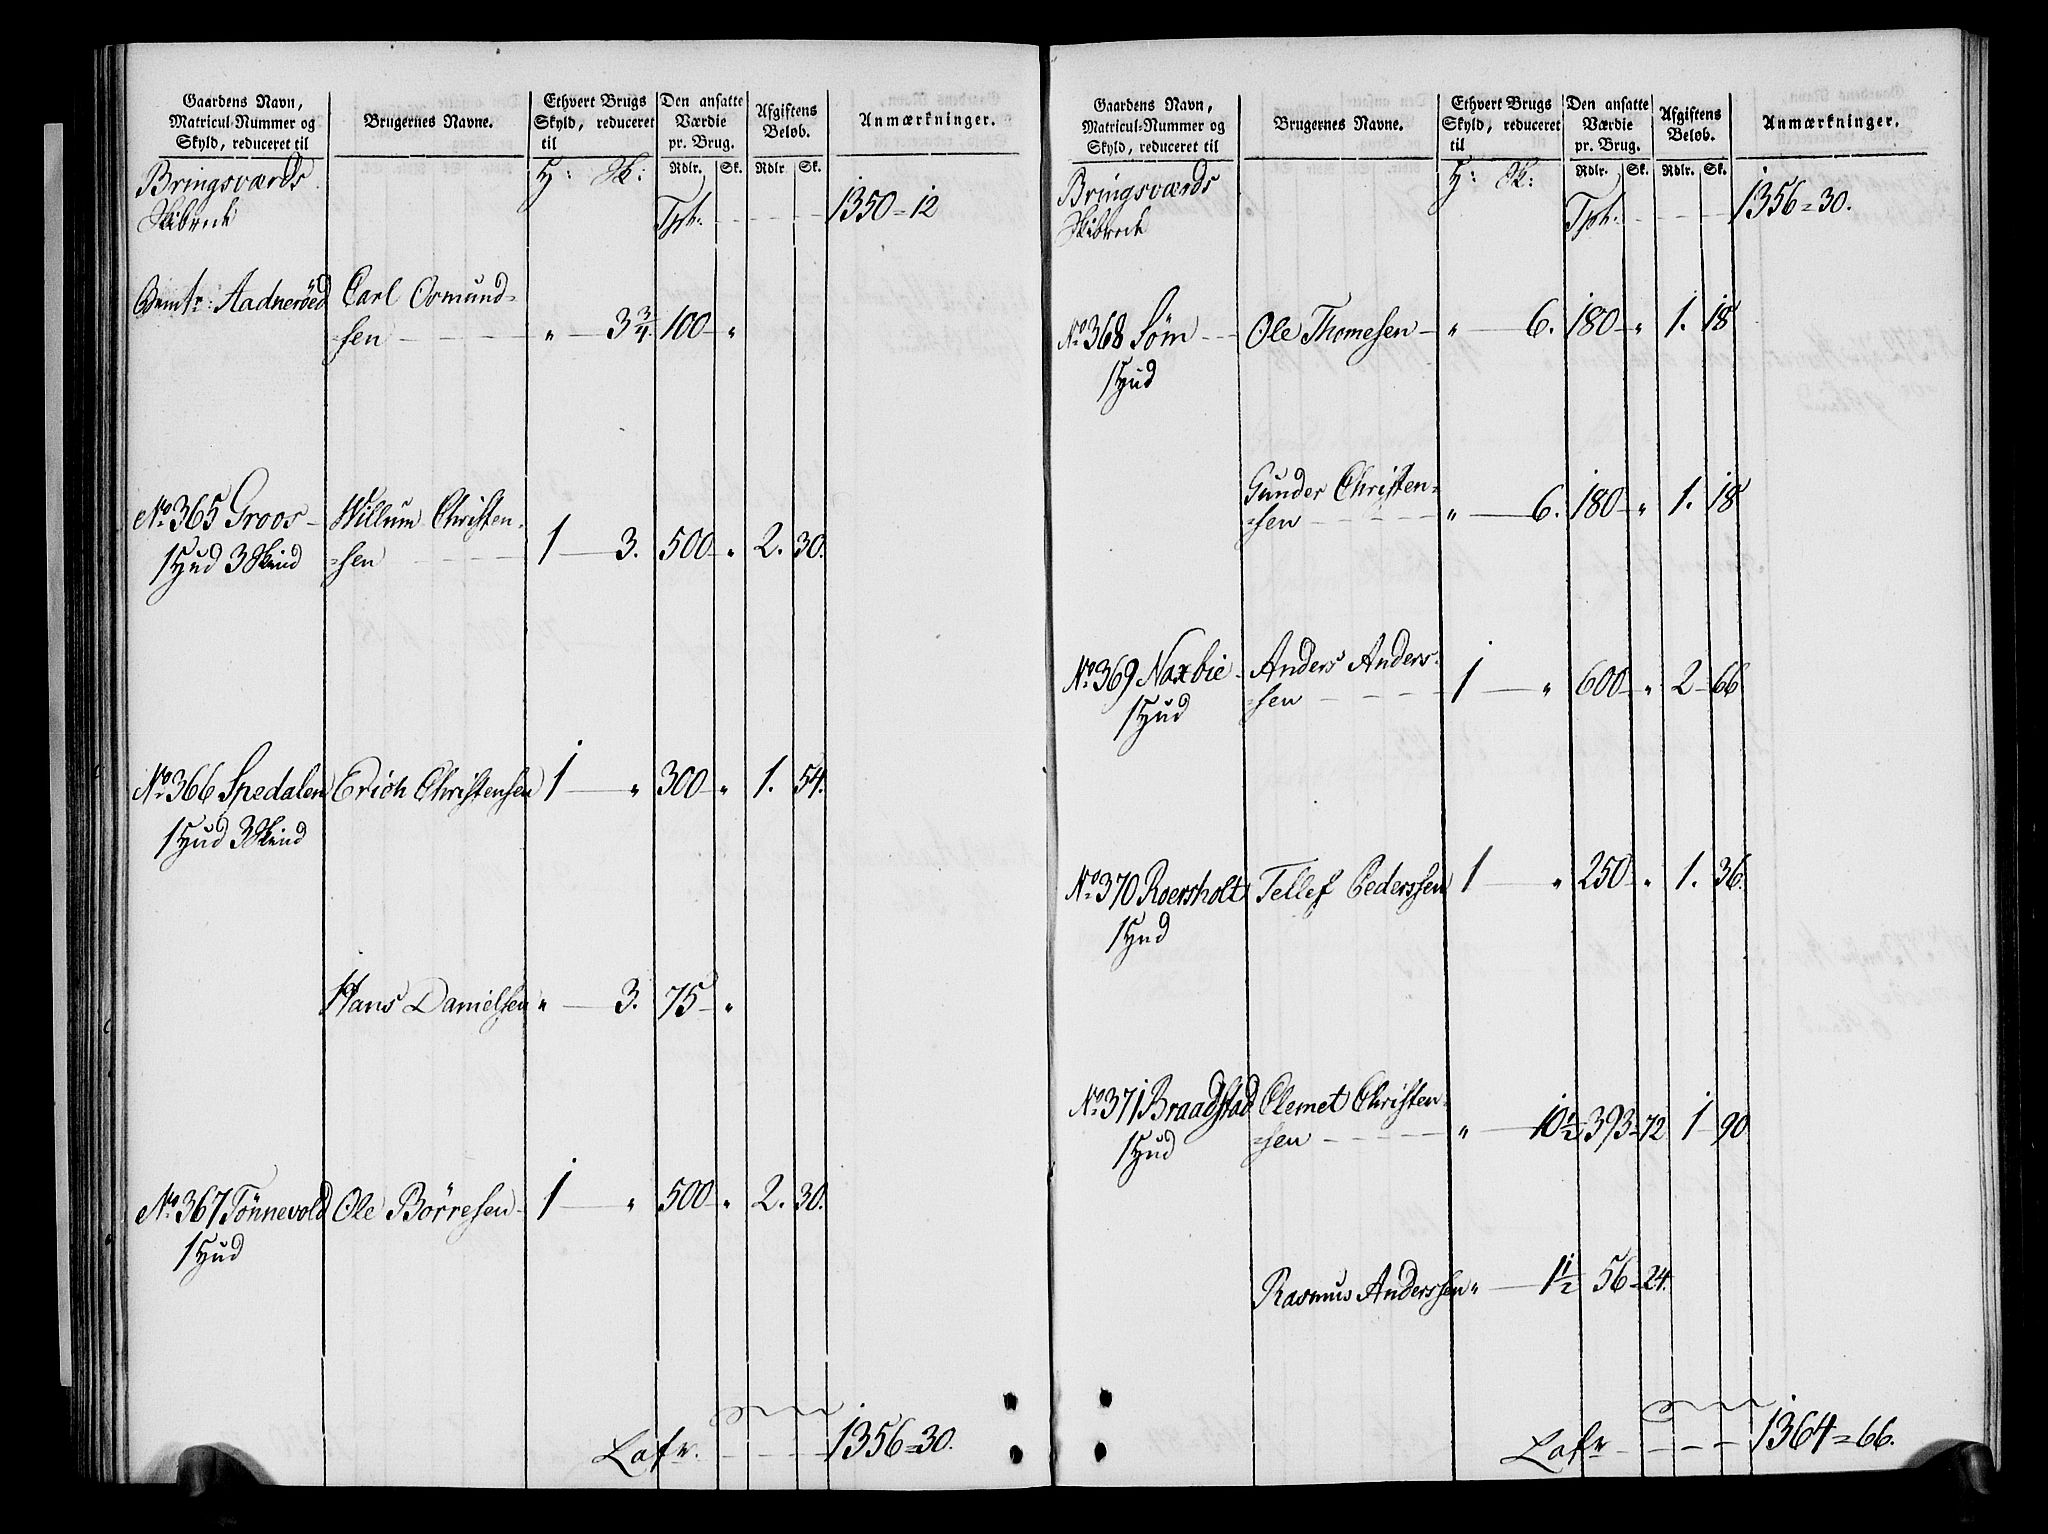 Gaardens Navn,
Matricul-Nummer og
Skyld, reduceret til
Brugernes Navne.
Ethvert Brugs
Skyld, reduceret
til
Den ansatte
Værdie
pr. Brug.
Rdlr. Sk.
Afgiftens
Beløb.
Rdlr. Sk.
Anmærkninger.
Bringsværds H: Sk:
Skibrede Tpt. 1350=12
Aadneröed Carl Osmund=
=sen " 3 3/4 100 "
No 365 Groos Willum Christen=
1 Hud 3 Skind =sen 1 3. 500 " 2. 30.
No 366 Spedalen Erich Christensen 1 " 300 " 1. 54.
1 Hud 3 Skind
Hans Danielsen " 3. 75 "
No 367 Tönnevold Ole Börresen 1 " 500 " 2. 30.
1 Hud
Lafr. 1356=30.
Gaardens Navn,
Matricul-Nummer og
Skyld, reduceret til
Brugernes Navne.
Ethvert Brugs
Skyld, reduceret
til
Den ansatte
Værdie
pr. Brug.
Rdlr. Sk.
Afgiftens
Beløb.
Rdlr. Sk.
Anmærkninger.
Bringsværds H: Sk:
Skibrede Tpt. 1356=30.
No 368 Söm Ole Thomesen " 6. 180 " 1. 18
1 Hud
Gunder Christen=
=sen " 6. 180 " 1. 18
No 369 Naxbie Anders Anders=
1 Hud =sen 1 " 600 " 2 66
No 370 Roersholt Tellef Pederssen 1 " 250 " 1. 36.
1 Hud
No 371 Braadstad Clemet Christen=
1 Hud =sen " 10 1/2 393=72 1 90
Rasmus Anderssen " 1 1/2 56=24.
Lafr 1364=66.